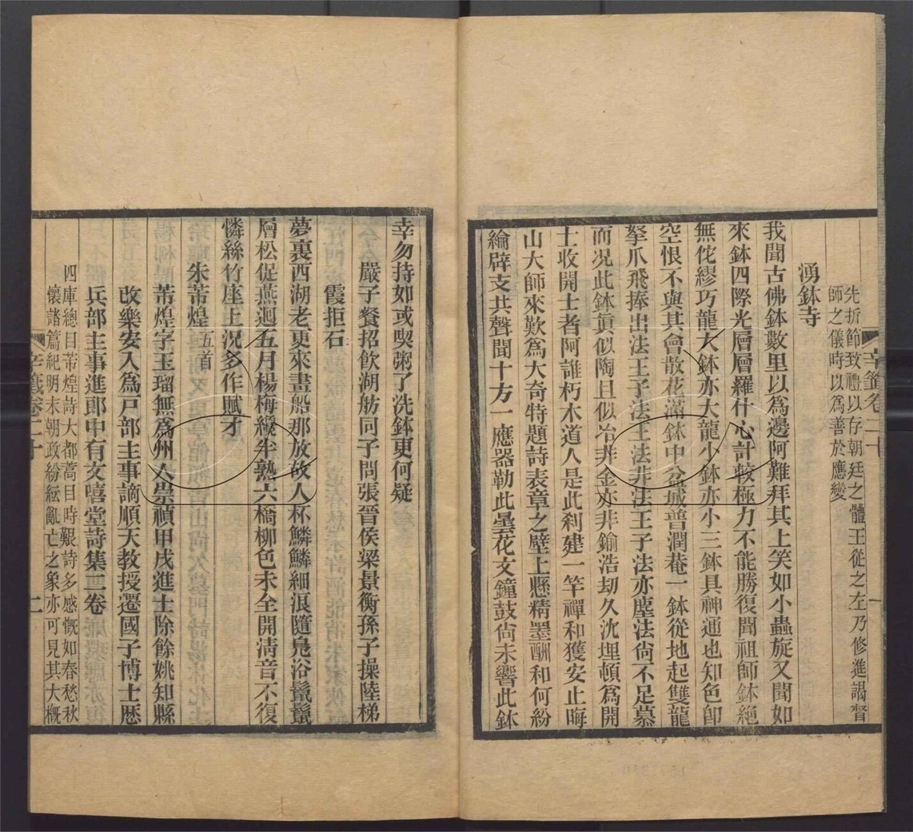 先折節致禮以存朝廷之體王從之左乃修進謁督
師之儀時以爲善於應變
湧鉢寺
我聞古佛鉢數里以爲邊阿難拜其上笑如小蟲旋又聞如
來鉢四際光層層羅什心計較極力不能勝復聞祖師鉢絕
無侘繆巧龍大鉢亦大龍小鉢亦小三鉢具神通也知色卽
空恨不與其會散花滿鉢中盆城普潤菴一鉢從地起雙龍
拏爪飛捧出法王子法王法非法王子法亦塵法尙不足慕
而況此鉢眞似陶且似冶非金亦非鍮浩劫久沈埋頓爲開
士收開士者阿誰朽木道人是此刹建一竿禪和獲安止晦
山大師來歎爲大奇特題詩表章之壁上懸精墨酬和何紛
綸辟支共聲聞十方一應器勒此曇花文鐘鼓尙未響此鉢
辛籤卷二十
一
幸勿持如或喫粥了洗鉢更何疑
嚴子餐招飮湖舫同子問張晉侯梁景衡孫子操陸梯
霞拒石
夢裏西湖老更來畫船那放故人杯鱗鱗細浪隨鳧浴鬣鬣
層松促燕迴五月楊梅纔半熟六橋柳色未全開淸音不復
憐絲竹座上況多作賦才
朱芾煌五首
芾煌字玉瑠無爲州人崇禎甲戌進士除餘姚知縣
改樂安入爲戸部主事謫順天教授遷國子博士歴
兵部主事進郎中有文嘻堂詩集二卷
四庫總目芾煌詩大都蒿目時艱詩多感慨如春愁秋
懷諸篇紀明末朝政紛紜亂亡之象亦可見其大槪
辛籤卷二十
二